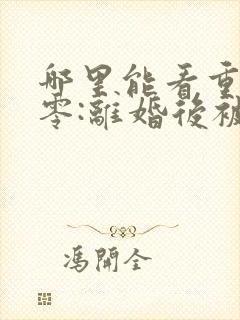 哪里能看重
零:離婚後被
馮開全